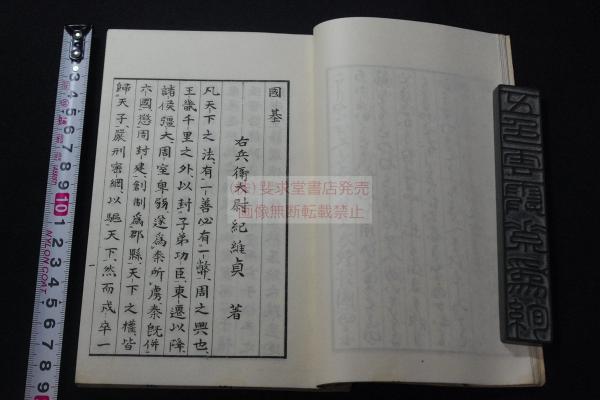 國基
右兵衛大尉紀維貞 著
凡天下之法、有一善必有一弊、周之興也、
王畿千里之外、以封子弟功臣、東遷以降、
諸侯彊大、周室卑弱、遂爲秦所虜、秦旣併
六國、懲周封建、創制爲郡縣、天下之權、皆
歸天子、嚴刑密網、以驅天下、然而戍卒一
一
(株) 斐求堂書店発売
画像無断転載禁止
3 4 5 6 7 8 9 10 1 2 3 4 5 6 7 8 9
NYLON COAT